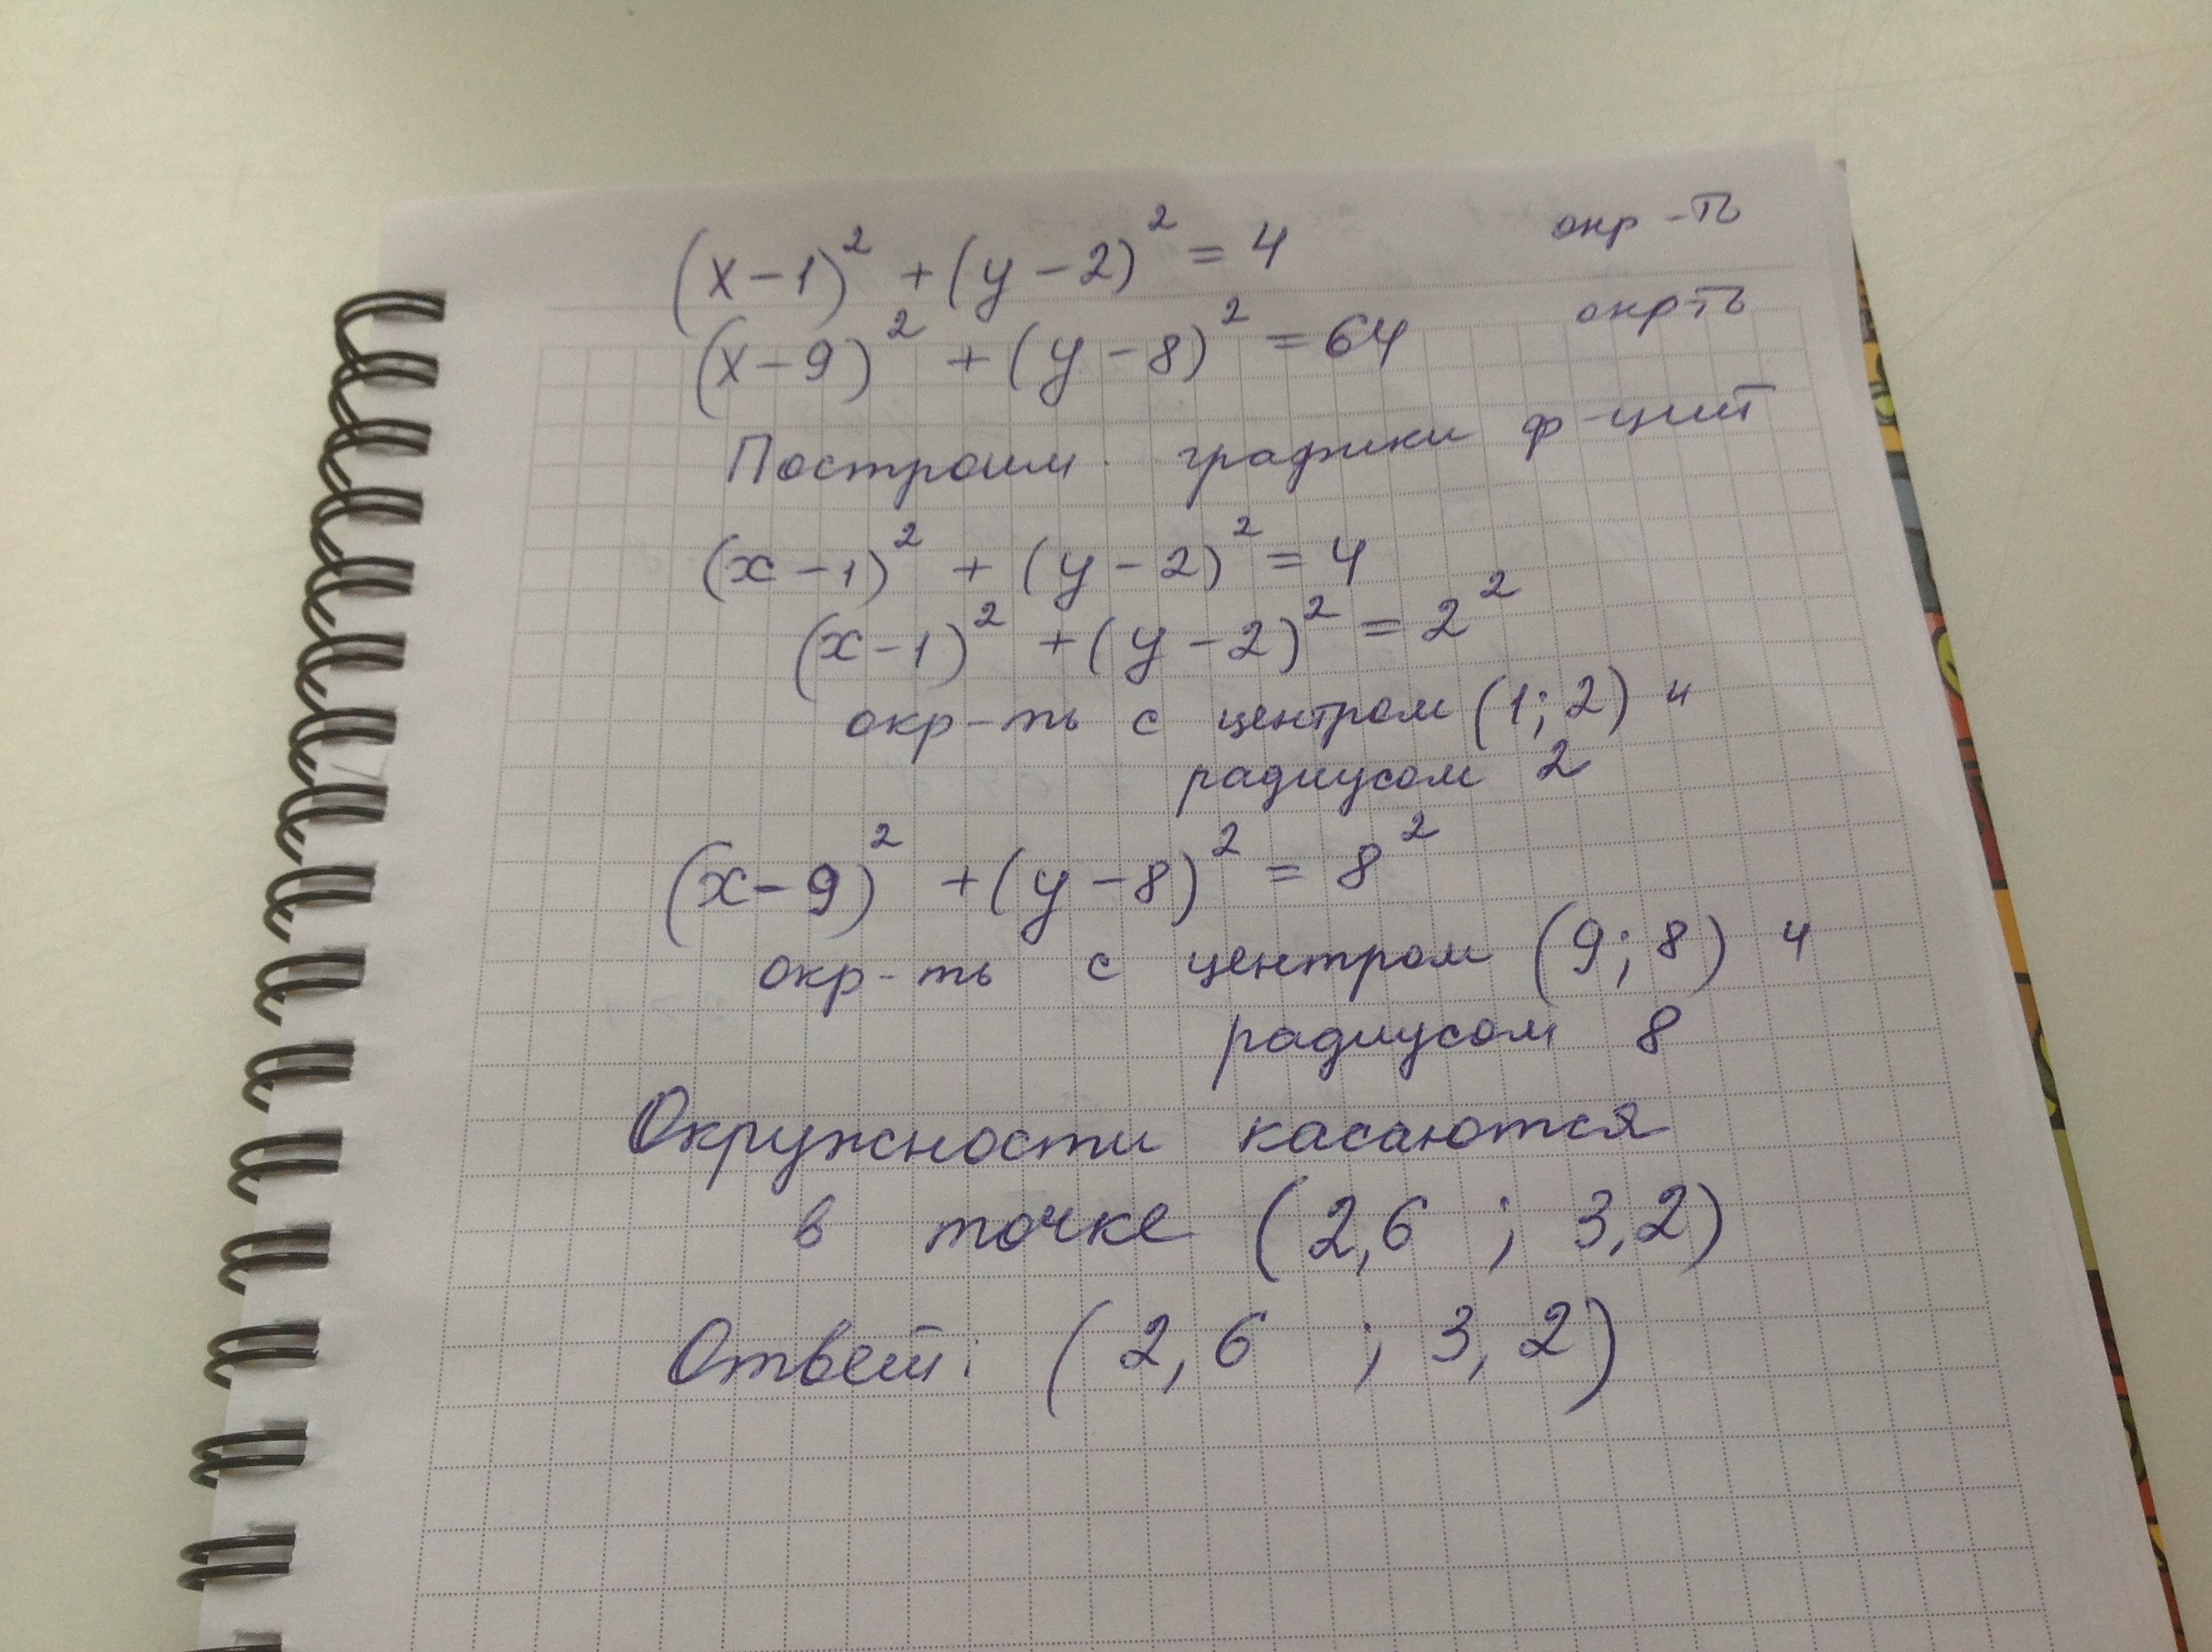 (x-1)² + (y-2)² = 4 окр-ть
(x-9)² + (y-8)² = 64 окр-ть
Построим графики ф-ций
(x-1)² + (y-2)² = 4
(x-1)² + (y-2)² = 2²
окр-ть с центром (1; 2) и
радиусом 2
(x-9)² + (y-8)² = 8²
окр-ть с центром (9; 8) и
радиусом 8
Окружности касаются
в точке (2,6 ; 3,2)
Ответ: (2,6 ; 3,2)